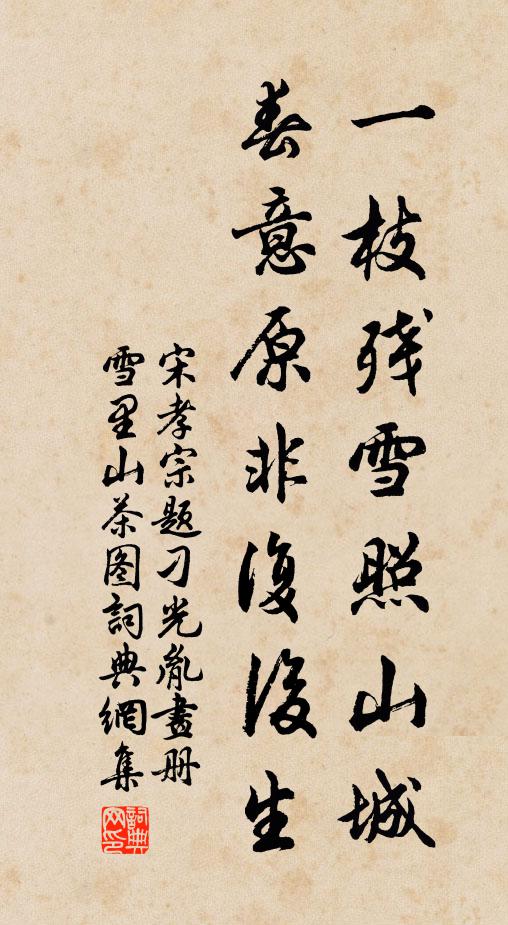 一枝残雪照山城
春意原非復後生
宋孝宗題刁光胤畫册
雪里山茶图詞典網集
詞典网印